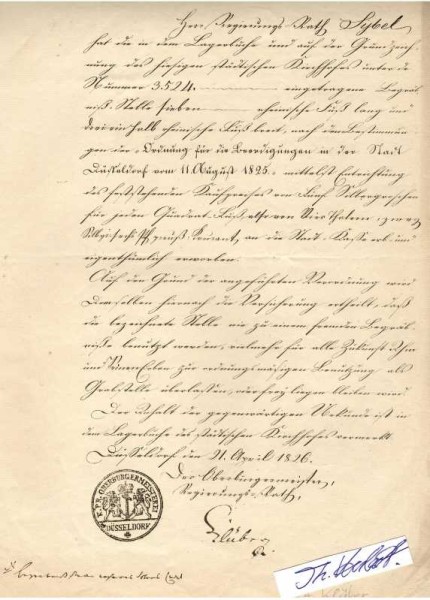 Herr Regierungs Rath Sybel
hat die in dem Lagerbuche und auf der Grundzeich-
nung des hiesigen städtischen Kirchhofes unter der
Nummer 3524. eingetragene Begräb-
niß-Stelle sieben rheinische Fuß lang und
drei ein halb rheinische Fuß breit, nach den Bestimmun-
gen der Ordnung für die Beerdigungen in der Stadt
Düsseldorf vom 11. August 1825. mittelst Entrichtung
des feststehenden Kaufpreises von Fünf Silbergroschen
für jeden Quadrat-Fuß, mit vier Thalern zwey
Silbergroschen Courant, an die Stadt-Kasse erb- und
eigenthümlich erworben.
Auf den Grund der angeführten Verordnung wird
Demselben hiernach die Versicherung ertheilt, daß
die bezeichnete Stelle nie zu einem fremden Begräb-
nisse benutzt werden, vielmehr für alle Zukunft Ihm
und Seinen Erben zur ordnungsmäßigen Benutzung als
Grabstelle überlassen, oder frey liegen bleiben wird.
Der Inhalt der gegenwärtigen Urkunde ist in
dem Lagerbuche des städtischen Kirchhofes vermerkt.
Düsseldorf den 21. April 1826.
Der Oberbürgermeister,
Regierungs-Rath,
Klüber
K. PR. OBERBÜRGERMEISTEREI
DÜSSELDORF